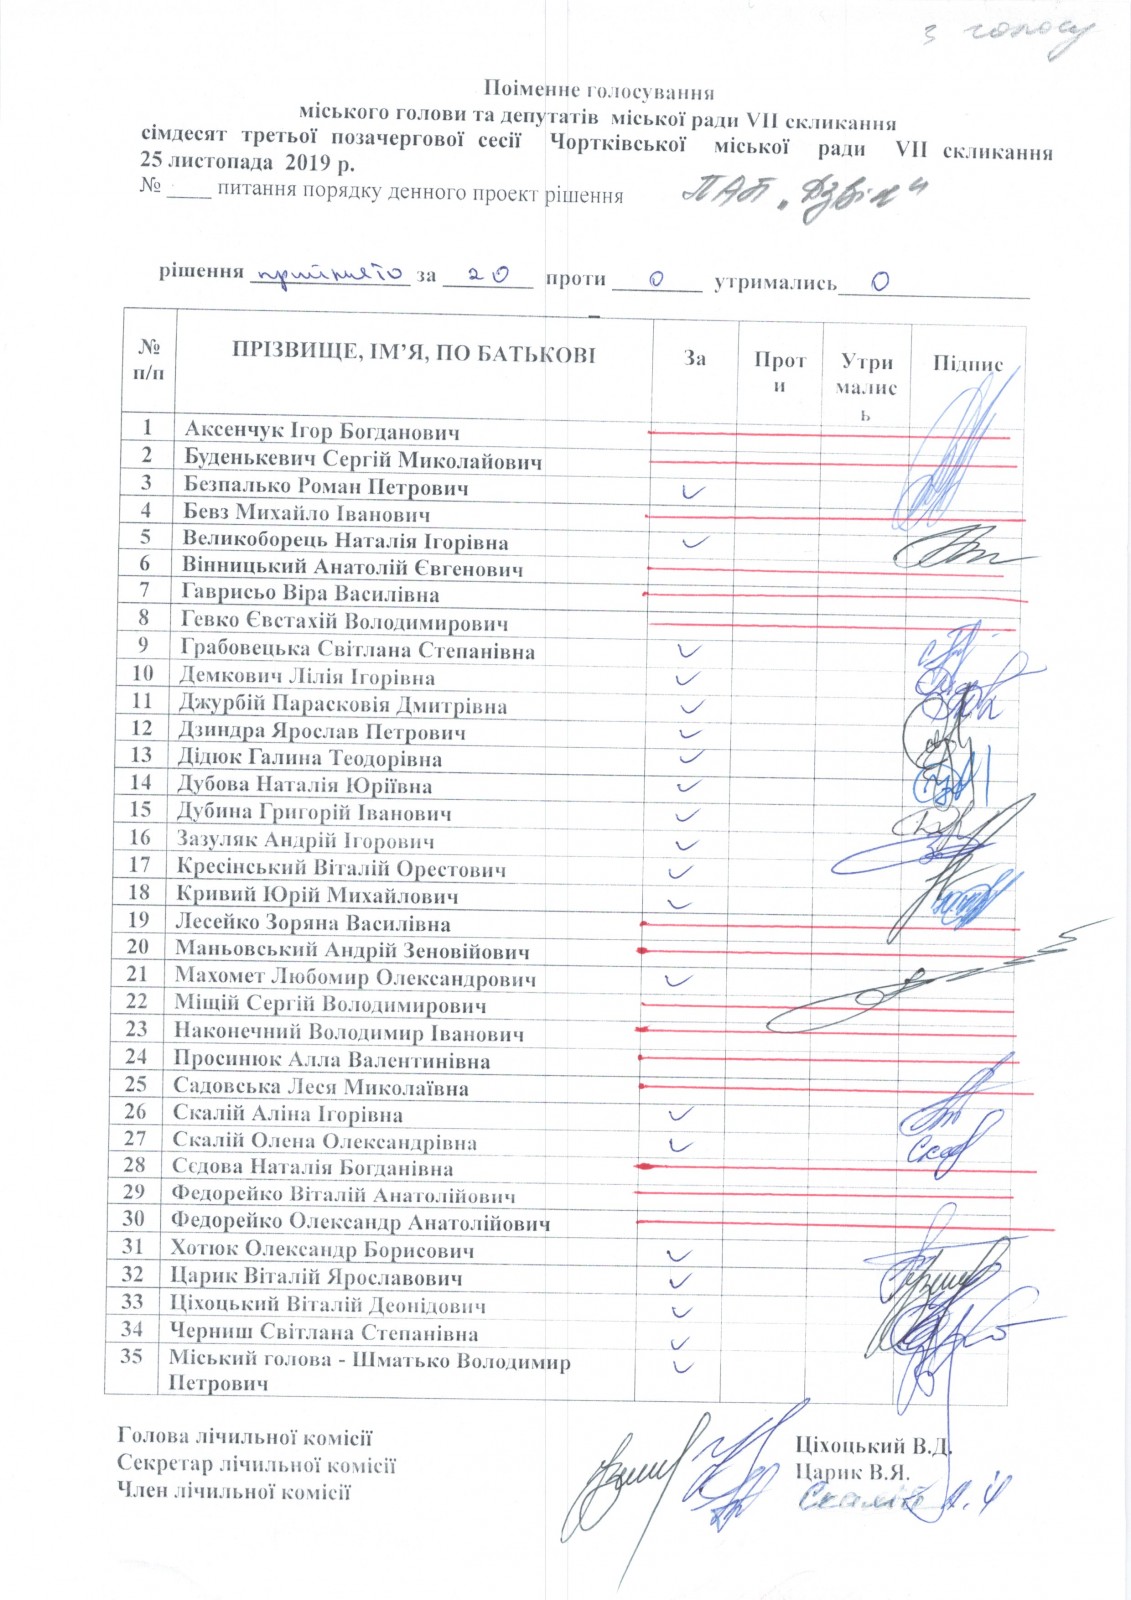 з голосу
Поіменне голосування
міського голови та депутатів міської ради VII скликання
сімдесят третьої позачергової сесії Чортківської міської ради VII скликання
25 листопада 2019 р.
№ ____ питання порядку денного проект рішення ПАП „Дзвін"
рішення прийнято за 20 проти 0 утримались 0
№ п/п ПРІЗВИЩЕ, ІМ’Я, ПО БАТЬКОВІ За Проти Утримались Підпис
1 Аксенчук Ігор Богданович
2 Буденькевич Сергій Миколайович
3 Безпалько Роман Петрович ✓
4 Бевз Михайло Іванович
5 Великоборець Наталія Ігорівна ✓
6 Вінницький Анатолій Євгенович
7 Гаврисьо Віра Василівна
8 Гевко Євстахій Володимирович
9 Грабовецька Світлана Степанівна ✓
10 Демкович Лілія Ігорівна ✓
11 Джурбій Парасковія Дмитрівна ✓
12 Дзиндра Ярослав Петрович ✓
13 Дідюк Галина Теодорівна ✓
14 Дубова Наталія Юріївна ✓
15 Дубина Григорій Іванович ✓
16 Зазуляк Андрій Ігорович ✓
17 Кресінський Віталій Орестович ✓
18 Кривий Юрій Михайлович ✓
19 Лесейко Зоряна Василівна
20 Маньовський Андрій Зеновійович
21 Махомет Любомир Олександрович ✓
22 Міщій Сергій Володимирович
23 Наконечний Володимир Іванович
24 Просинюк Алла Валентинівна
25 Садовська Леся Миколаївна
26 Скалій Аліна Ігорівна ✓
27 Скалій Олена Олександрівна ✓
28 Сєдова Наталія Богданівна
29 Федорейко Віталій Анатолійович
30 Федорейко Олександр Анатолійович
31 Хотюк Олександр Борисович ✓
32 Царик Віталій Ярославович ✓
33 Ціхоцький Віталій Деонідович ✓
34 Черниш Світлана Степанівна ✓
35 Міський голова - Шматько Володимир ✓
Петрович
Голова лічильної комісії Ціхоцький В.Д.
Секретар лічильної комісії Царик В.Я.
Член лічильної комісії Скалій